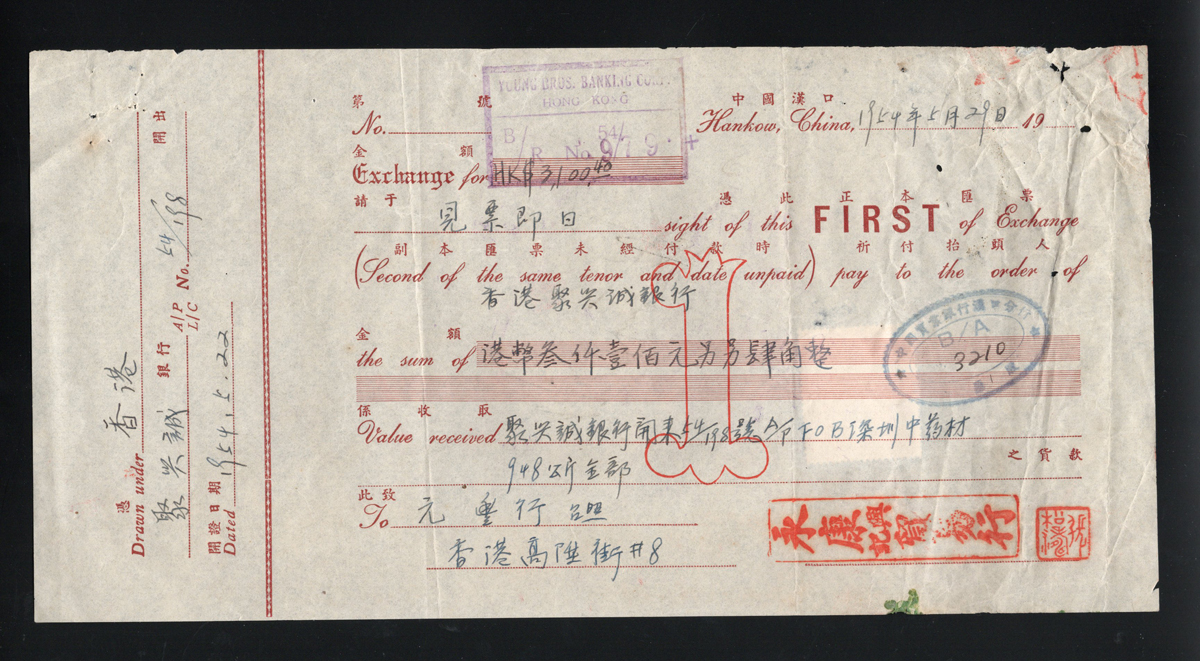 第 號
No.
YOUNG BROS. BANKING CORP.
HONG KONG
B/R No. 54/9/19
中國漢口
Hankow, China, 1954年5月29日 19
金額
Exchange for HK$3,100.40
請于 憑此正本匯票
見票即日 sight of this FIRST of Exchange
副本匯票未經付款時 祈付抬頭人
(Second of the same tenor and date unpaid) pay to the order of
香港聚兴誠銀行
金額
the sum of 港幣叁仟壹佰元另肆角整
B/A
3210
係收取
Value received 聚兴誠銀行開來54/198號 FOB深圳中药材
948公斤全部 之貨款
此致
To 元豐行 台照
香港高陞街#8
永康興記寶發行
憑 開出
Drawn under 香港
聚兴誠 銀行 A/P L/C No. 54/198
開證日期
Dated 1954.5.22